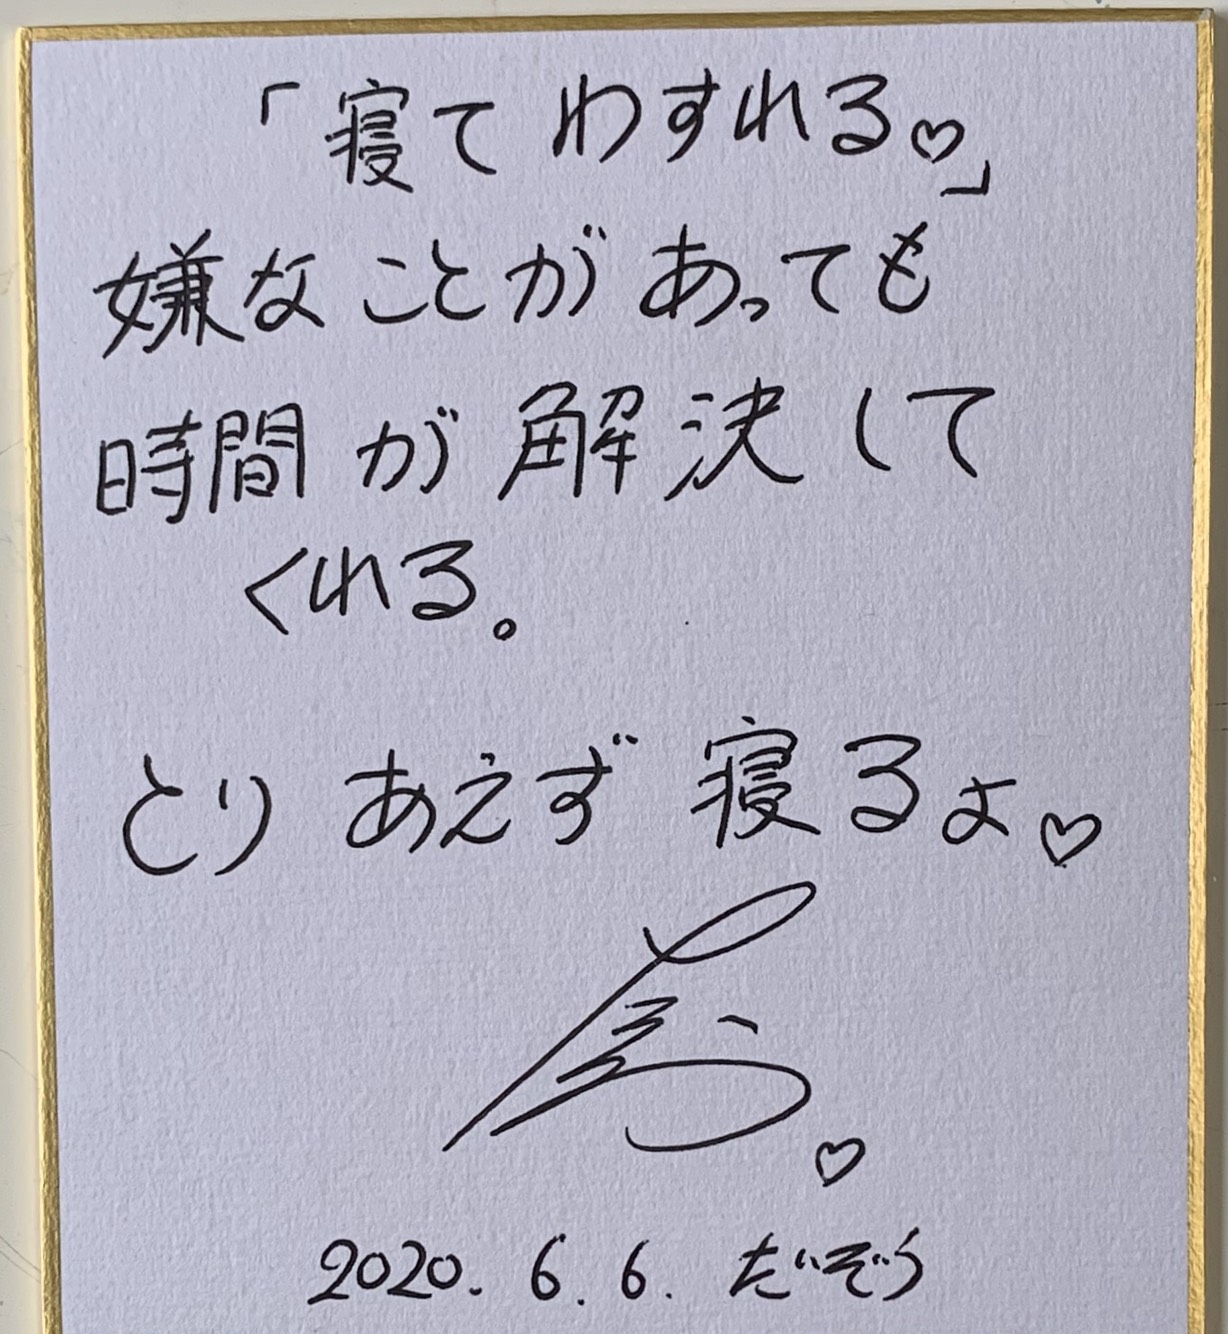 「寝てわすれる♡」
嫌なことがあっても
時間が解決して
くれる。
とりあえず寝るよ♡
2020.6.6. だいぞう